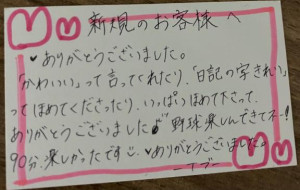 新規のお客様へ
♥ありがとうございました。
「かわいい」って言ってくれたり、「日記の字きれい」
ってほめてくださったり、いっぱいほめて下さって、
ありがとうございました♪ 野球楽しんできてネー!
90分、楽しかったです♡ ♥ありがとうございました。